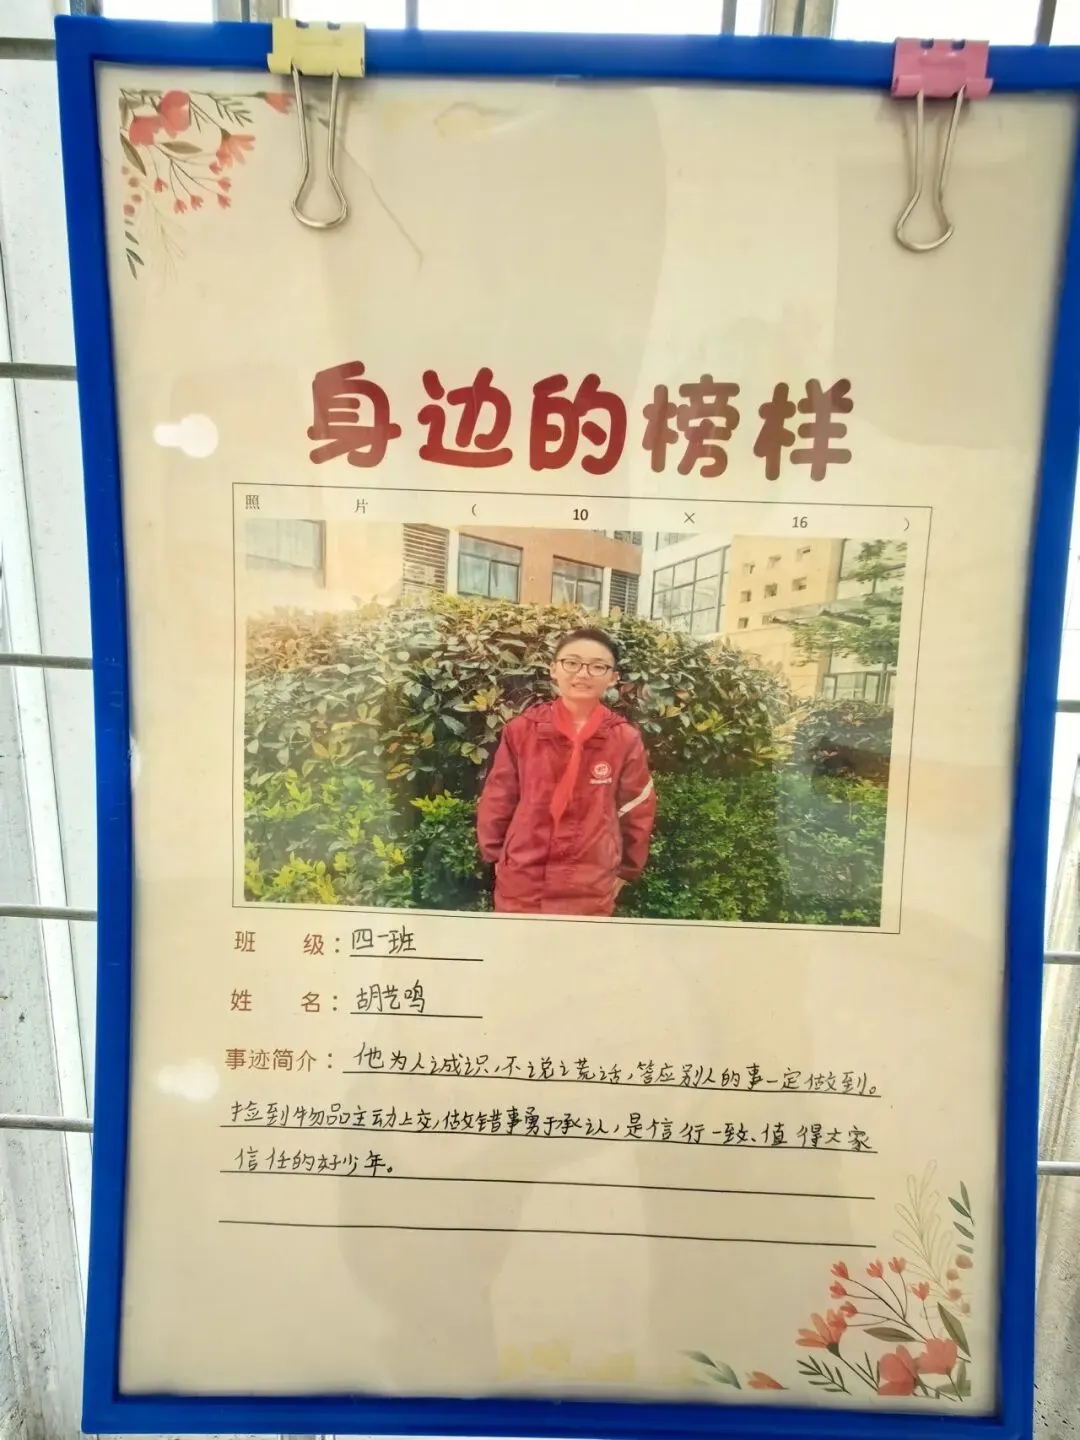 身边的榜样
照片(10×16)
班级：四一班
姓名：胡艺鸣
事迹简介：他为人诚识，不说谎话，答应别人的事一定做到。
捡到物品主动上交，做错事勇于承认，是信行一致、值得大家
信任的好少年。